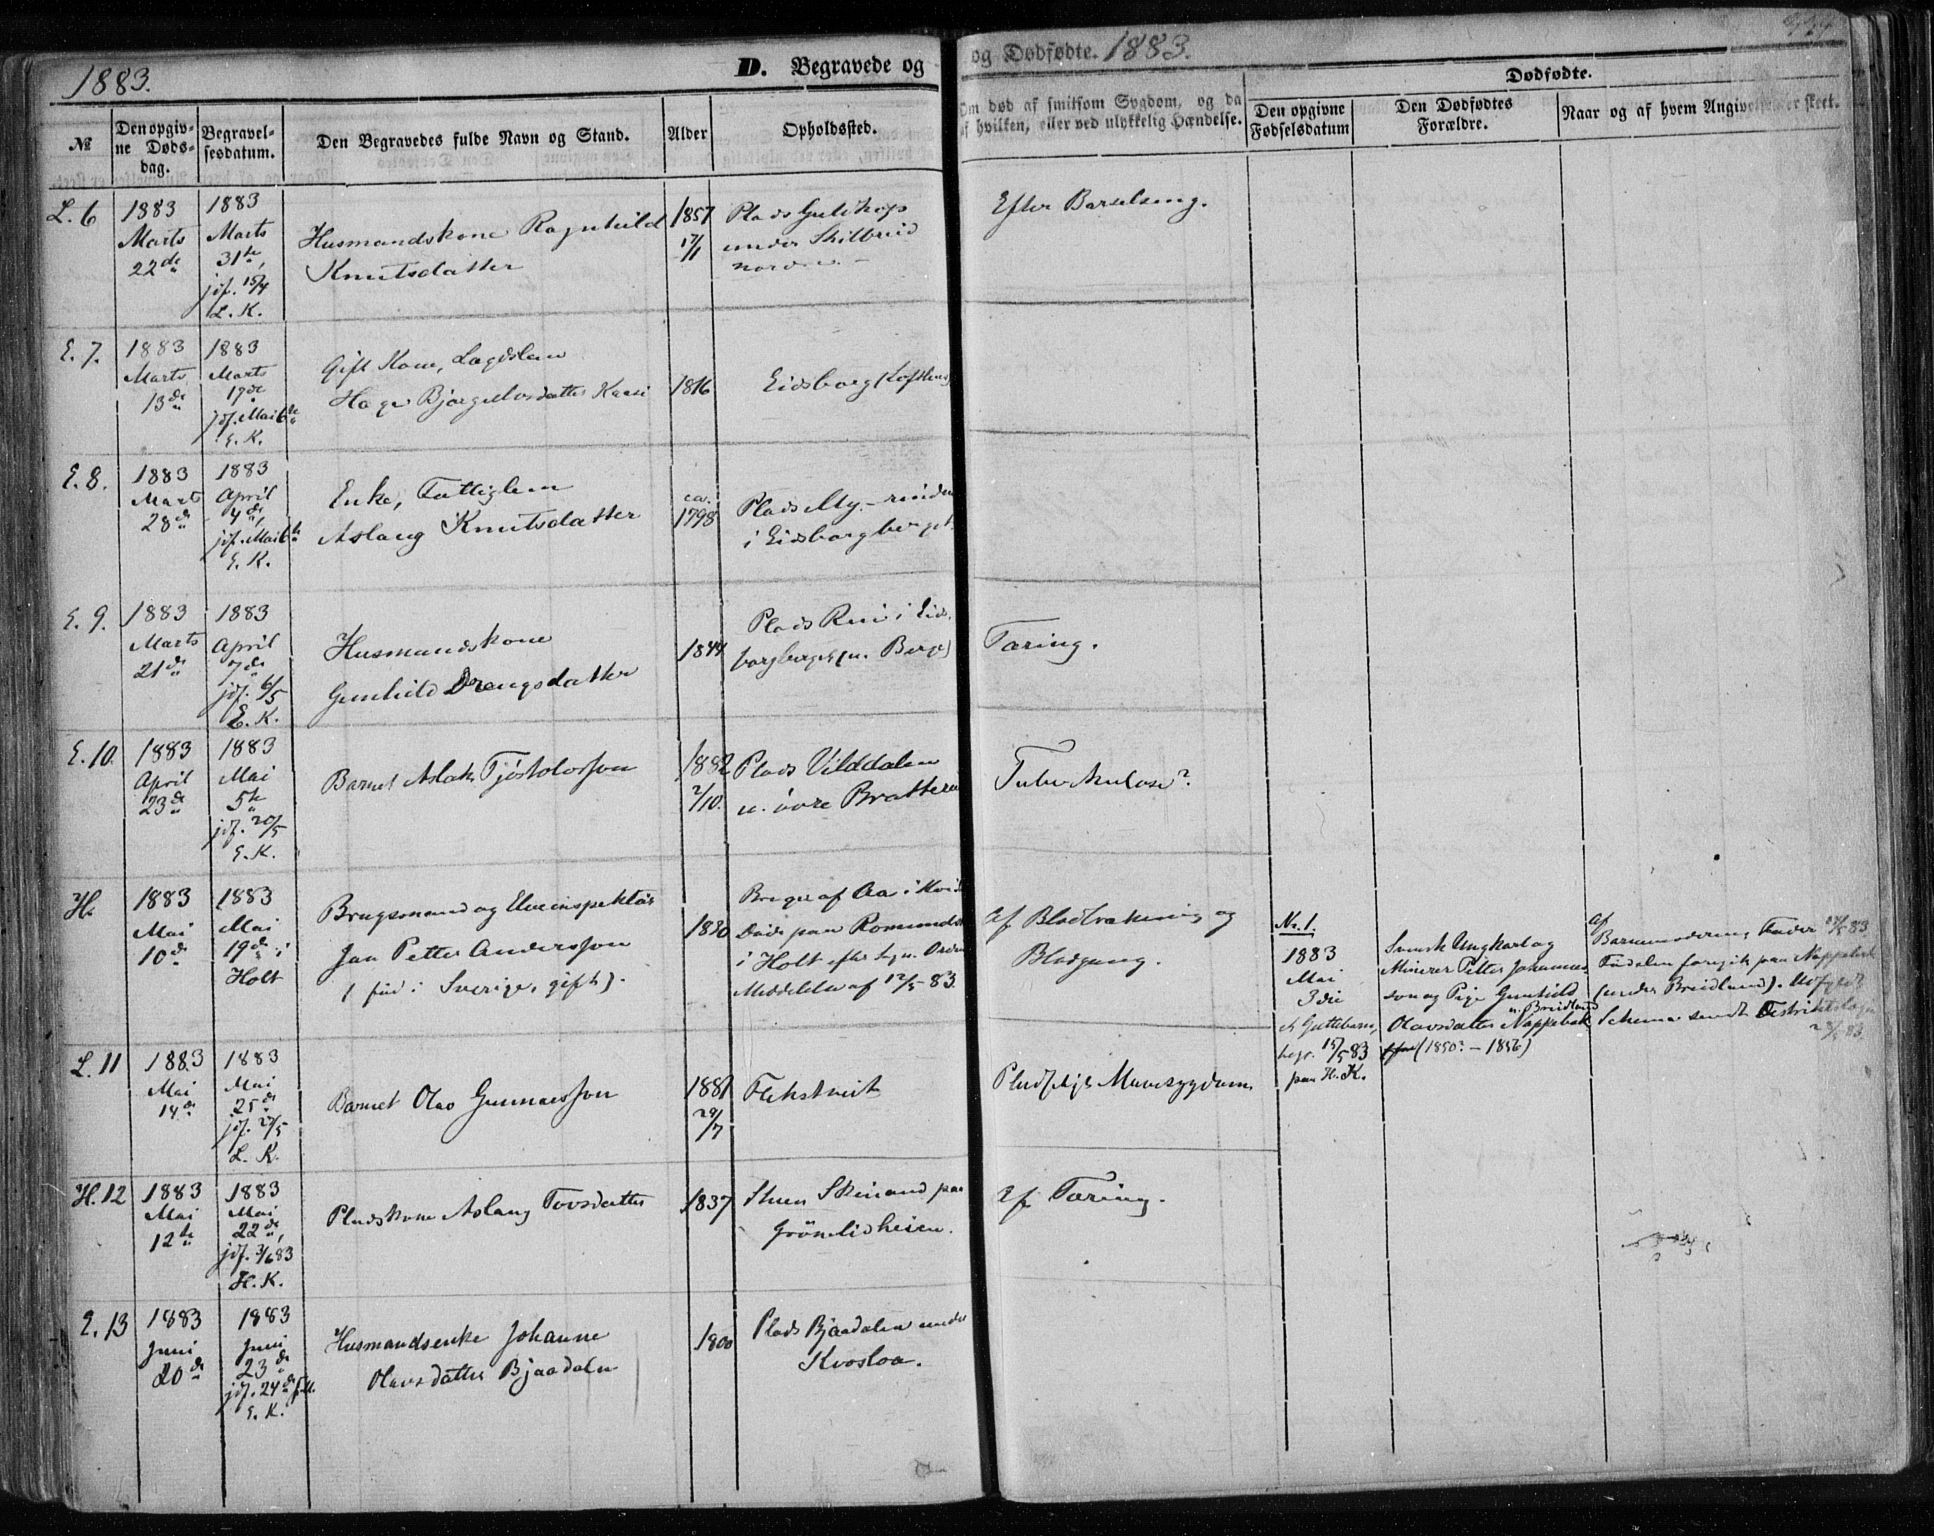 1883.
D. Begravede og
og Dødfødte. 1883.
№
Den opgiv-
ne Døds-
dag.
Begravel-
sesdatum.
Den Begravedes fulde Navn og Stand.
Alder
Opholdssted.
Om død af smitsom Sygdom, og da
af hvilken, eller ved ulykkelig Hændelse.
Dødfødte.
Den opgivne
Fødselsdatum
Den Dødfødtes
Forældre.
Naar og af hvem Angivelsen er skeet.
L. 6
1883
Marts
22de
1883
Marts
31te,
jdf. 15/4
L. K.
Husmandskone Ragnhild
Knutsdatter
1857
17/1
Plads
under Skilbreid
Efter Barselseng.
E. 7.
1883
Marts
13de
1883
Marts
19de
jdf. Mai 6te
E. K.
Gift Kone, Lægdslem
Bjørgulvsdatter
1816
Eidsborg
E. 8.
1883
Marts
28de
1883
April
4de,
jdf. Mai 6te
E. K.
Enke, Fattiglem
Aslaug Knutsdatter
ca.
1798
Plads
i Eidsborgberget
E. 9.
1883
Marts
21de
1883
April
7de
jdf. 6/5
E. K.
Husmandskone
Gunhild Drengsdatter
1844
Plads Rui i Eids-
borgberget (u. Berge)
Tæring.
E. 10.
1883
April
23de
1883
Mai
5te
jdf. 20/5
E. K.
Barnet Aslak Tjöstolvsson
1882
2/10.
Plads Vilddalen
u. övre Bratterud
Tuberkulose?
H.
1883
Mai
10de
1883
Mai
19de i
Holt
Brugsmand og Elveinspektör
Jan Petter Andersson
(föd i Sverige, gift).
1830
Bruger af Aa i
Döde paa
i Holt efter
Meddelelse af 12/5 83.
af Blodbrækning og
Blodgang.
Nr. 1.
1883
Mai
3die
et Guttebarn,
begr. 15/5 83
paa H. K.
Svensk Ungkarl og
Minerer Petter Johannes-
son og Pige Gunhild
u. Breidland
Olavsdatter Nappebak
(1850? – 1856)
af
Barnemoderens Fader
Födselen foregik paa Nappebak
(under Breidland).
Schema sendt Distriktslægen
L. 11
1883
Mai
14de
1883
Mai
25de
jdf. 27/5
L. K.
Barnet Olav Gunnarsson
1881
29/7
Flekstveit
Pludselig Mavesygdom.
H. 12
1883
Mai
12te
1883
Mai
22de,
jdf. 3/6 83
H. K.
Pladskone Aslaug Tovsdatter
1837
Stuen Skinand paa
Grönlidheien.
af Tæring.
E. 13
1883
Juni
20de
1883
Juni
23de
jdf. 24de s. M.
E. K.
Husmandsenke Johanne
Olavsdatter Bjaadalen
1800
Plads Bjaadalen under
Kvosloa.